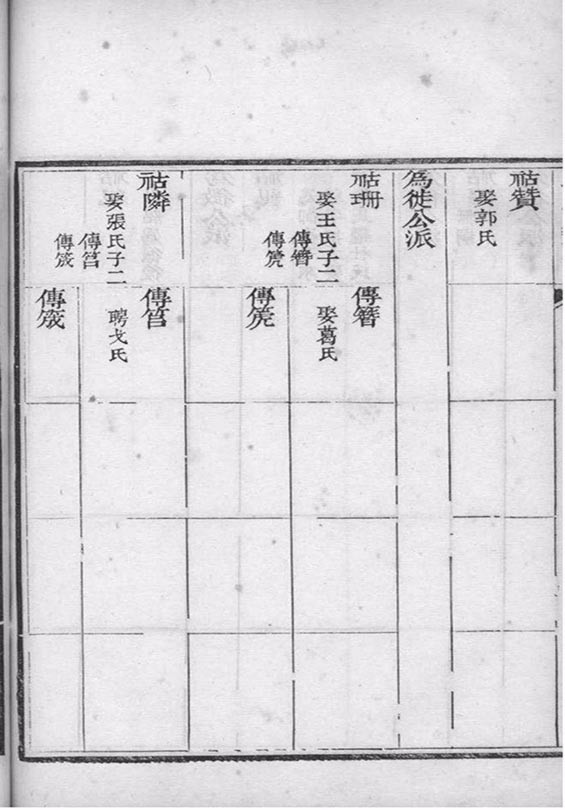 祜贊
娶郭氏
為徙公派
祜珊
娶王氏子二
傳簪
傳
傳簪
娶葛氏
傳
祜隣
娶張氏子二
傳
傳筬
傳
聘戈氏
傳筬